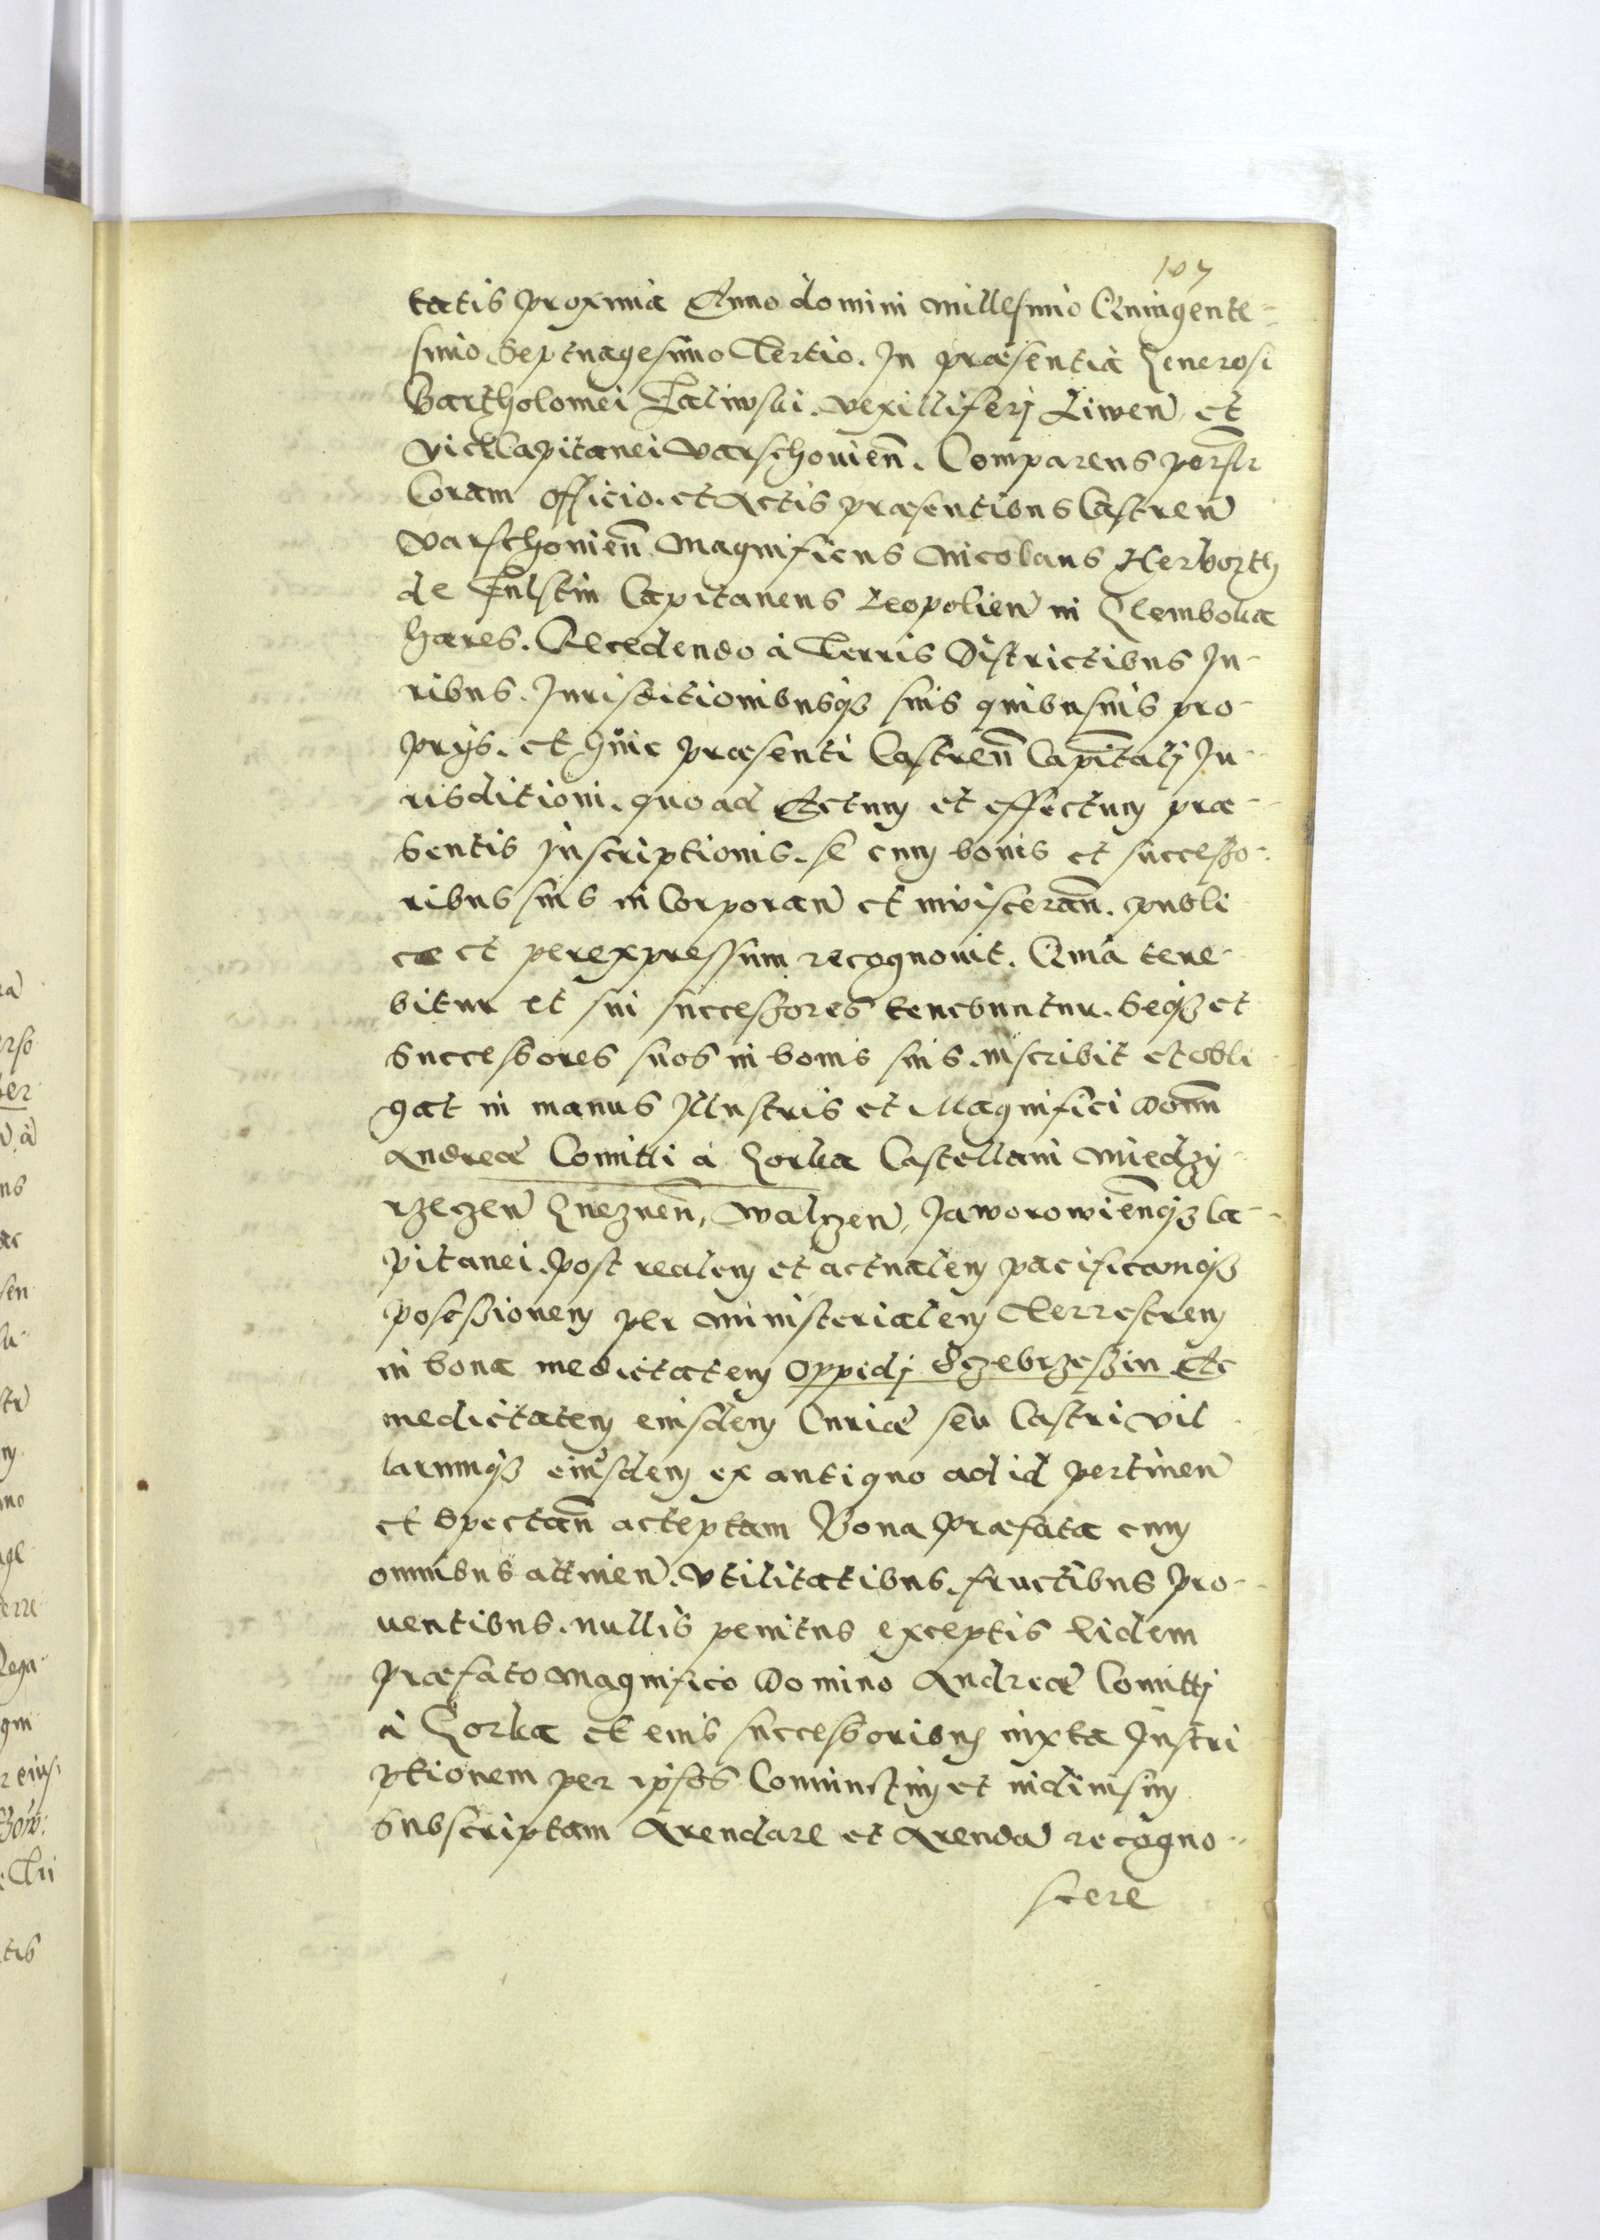 107
tatis proxima Anno domini millesimo Quingente-
simo Septuagesimo Tertio. In præsentia Generosi
Bartholomei Zaliwski. vexilliferj Liwen̄ et
viceCapitanei varschouien̄. Comparens per̄slr
Coram officio. et Actis præsentibus Castren̄
varschouien̄ Magnificus Nicolaus Herborth
de Fulstin Capitaneus Leopolien̄ in Glemboka
hæres. Recedendo à Terris Districtibus Ju-
ribus. Jurisditionibusqȝ suis quibusuis pro-
prÿs. et huic præsenti Castren̄ Capitalj Ju-
risditioni. quo ad Actum et effectum præ-
sentis Inscriptionis. se cum bonis et successo-
ribus suis inCorporan̄ et inuisceran̄. publi
cæ et perexpressum recognouit. Quia tene-
bitur et sui successores tenebuntur. seqȝ et
Successores suos in bonis suis. inscribit et obli
gat in manus Illustris et Magnifici Domn̄
Andreæ Comitti à Gorka Castellani Miedzÿ-
rzeczen̄ Gneznen̄, Walczen̄, Jaworowien̄qȝ Ca-
pitanei. post realem et actualem pacificamqȝ
possessionem per ministerialem Terrestrem
in bona medietatem Oppidj Sczebrzessin Etc
medietatem eiusdem Curiæ seu Castri vil
larumqȝ eiusdem ex antiquo ad id pertinen̄
et spectan̄ acceptam Bona præfata cum
omnibus attinen̄. vtilitatibus. fructibus pro-
uentibus. nullis penitus exceptis eidem
præfato Magnifico Domino Andreæ Comittj
à Gorka et eius successoribus iuxta Inscri
ptionem per ipsos Coniunctim et indiuisim
Subscriptam Arendare et Arendā recogno-
scere